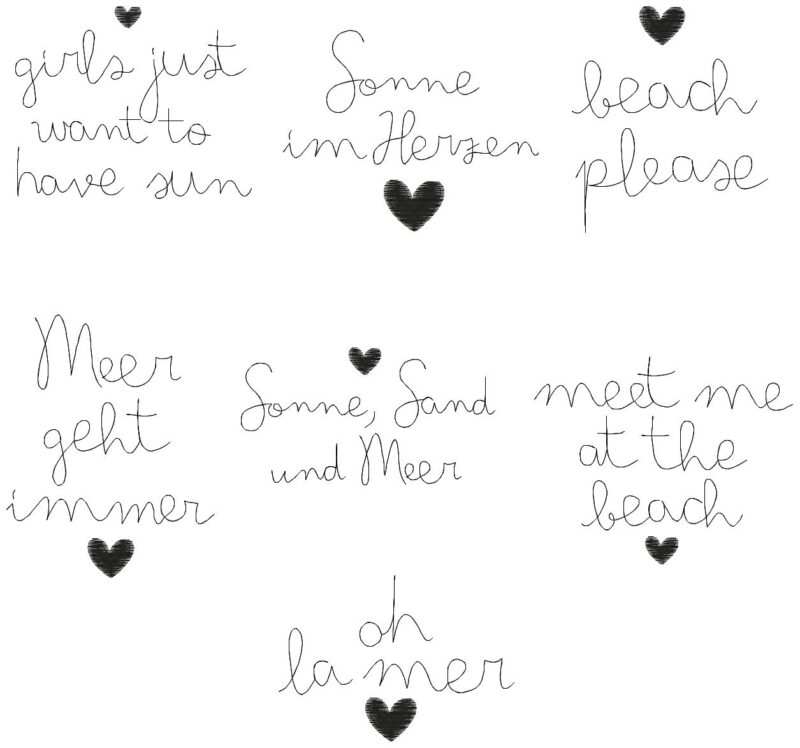 girls just
want to
have sun
Sonne
im Herzen
beach
please
Meer
geht
immer
Sonne, Sand
und Meer
meet me
at the
beach
oh
la mer